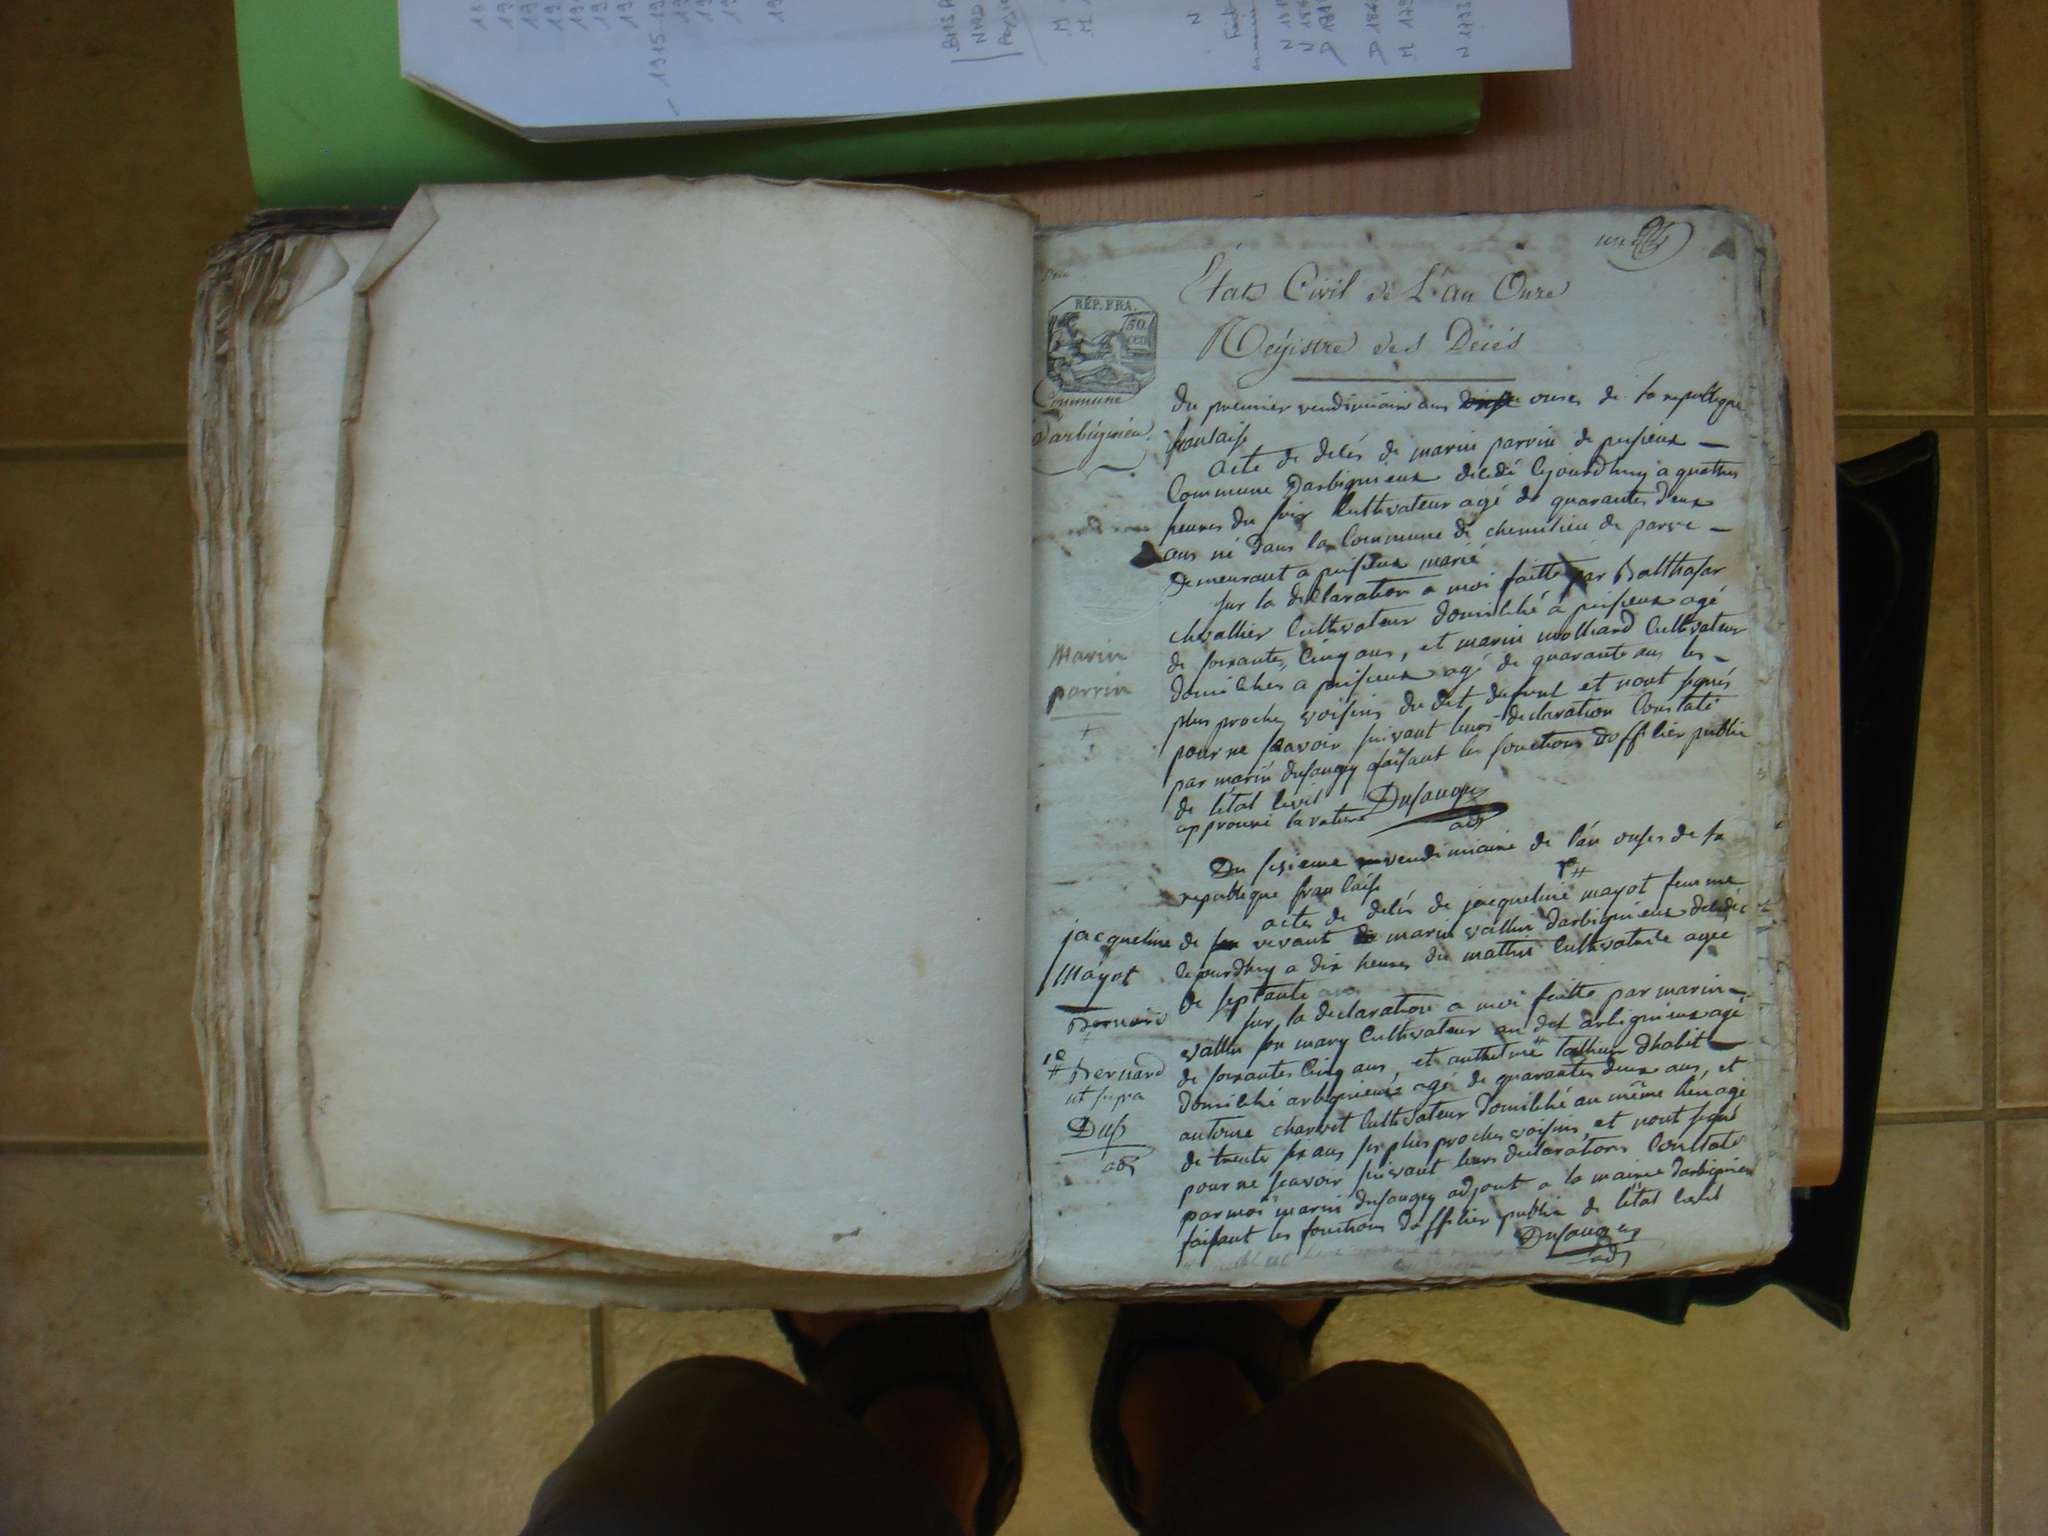 États Civil de L'an Onze
Régistre des Décés
RÉP. FRA.
50
Commune
Darbignieu
du premier vendimiaire an onzes de la republique
francaise
acte de délés de marin parrin de pusieux
Commune Darbignieux décédé cejourdhuy a quattres
heures du soir Cultivateur agé de quarantes deux
ans né dans la Commune de chemilieu de parve
demeurant a pusieux marié
sur la déclaration a moi faitte par Balthasar
chevallier Cultivateur domicilié a pusieux agé
de soixantes Cinq ans, et marin molliard Cultivateur
domiciliés a pusieux agé de quarante ans les
plus proches voisins du dit defunt et n'ont signés
pour ne scavoir suivant leurs declaration Constaté
par marin dusaugey faisant les fonctions dofficier public
de létat Civil
approuvé la rature Dusaugey
adj
Marin
parrin
Du sixieme vendimiaire de l'an onses de la
republique francaise
acte de délés de jacqueline mayot femme
de vivant marin vallin darbignieux décédée
cejourdhuy a dix heures du mathin Cultivatrice agee
de septante ans
sur la declaration a moi faitte par marin
vallin Cultivateur au dit arbignieux agé
de soixantes Cinq ans, et tallieur dhabit
domicilié arbignieux agé de quarantes deux ans, et
antoine charvet Cultivateur domicilié au même lieu agé
de trente six ans ses plus proches voisins, et n'ont signé
pour ne scavoir suivant leurs declarations Constaté
par moi marin dusaugey adjoint a la mairie darbignieu
faisant les fonctions dofficier public de létat Civil
Dusaugey
adj
jacqueline
Mayot
Bernard
Bernard
ut supra
Dus
adj
1915-19